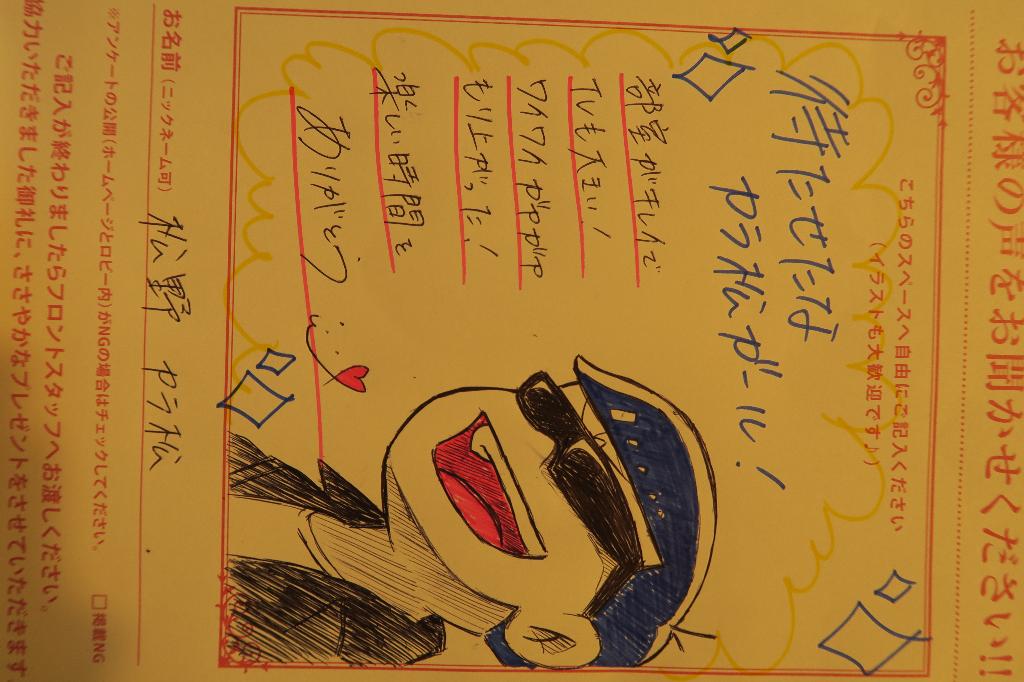 お客様の声をお聞かせください!!
こちらのスペースへ自由にご記入ください
(イラストも大歓迎です♪)
待たせたな
カラ松ガール!
部室がキレイで
TVも大きい!
ワイワイガヤガヤ
もり上がった!
楽しい時間を
ありがとう
お名前(ニックネーム可) 松野 カラ松
※アンケートの公開(ホームページとロビー内)がNGの場合はチェックしてください。 □掲載NG
ご記入が終わりましたらフロントスタッフへお渡しください。
協力いただきました御礼に、ささやかなプレゼントをさせていただきます